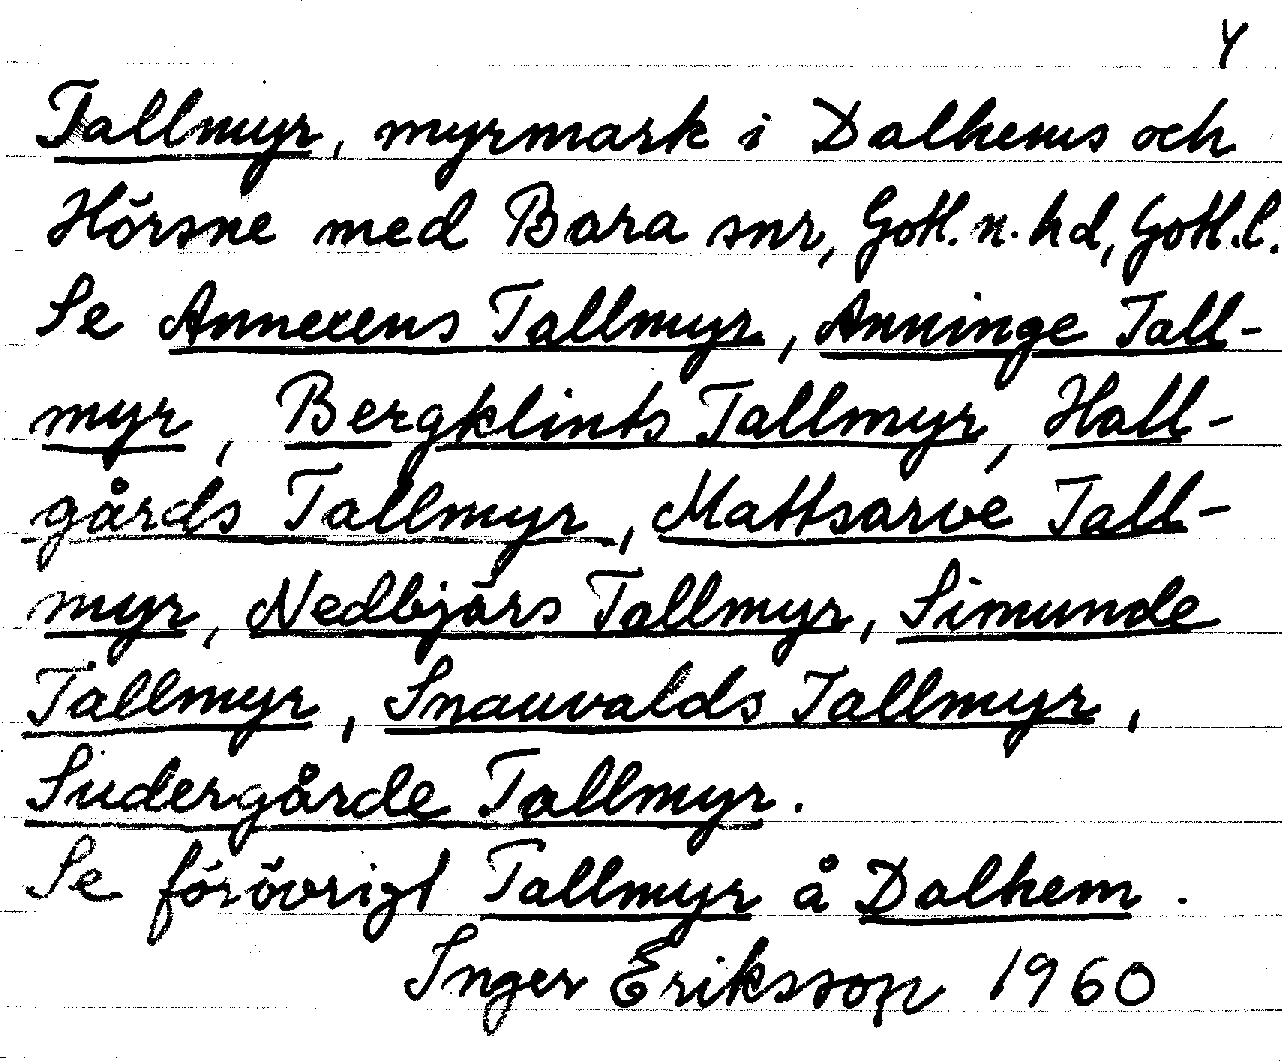 Y
Tallmyr, myrmark i Dalhems och
Hörsne med Bara snr, Gotl. n. hd, Gotl. l.
Se Annexens Tallmyr, Anninge Tall-
myr, Bergklints Tallmyr, Hall-
gårds Tallmyr, Mattsarve Tall-
myr, Nedbjärs Tallmyr, Simunde
Tallmyr, Snauvalds Tallmyr,
Sudergårde Tallmyr.
Se förövrigt Tallmyr å Dalhem.
Inger Eriksson 1960